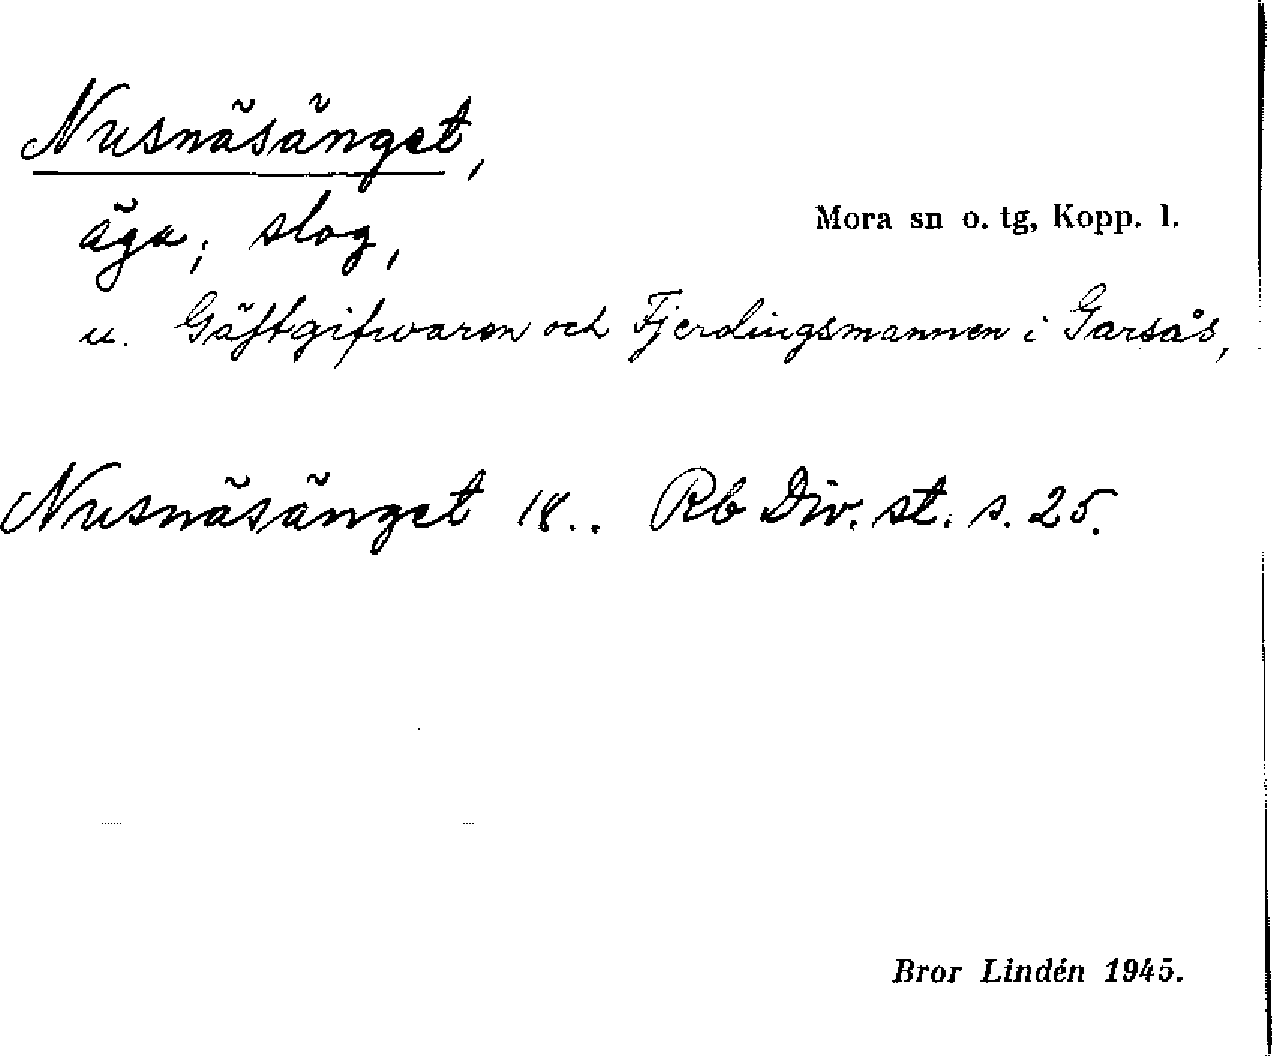 Nusnäsänget,
äga; slog,
Mora sn o. tg, Kopp. l.
u. Gästgifwaren och Fjerdingsmannen i Garsås,
Nusnäsänget 18.. Rb Div. st. s. 25.
Bror Lindén 1945.